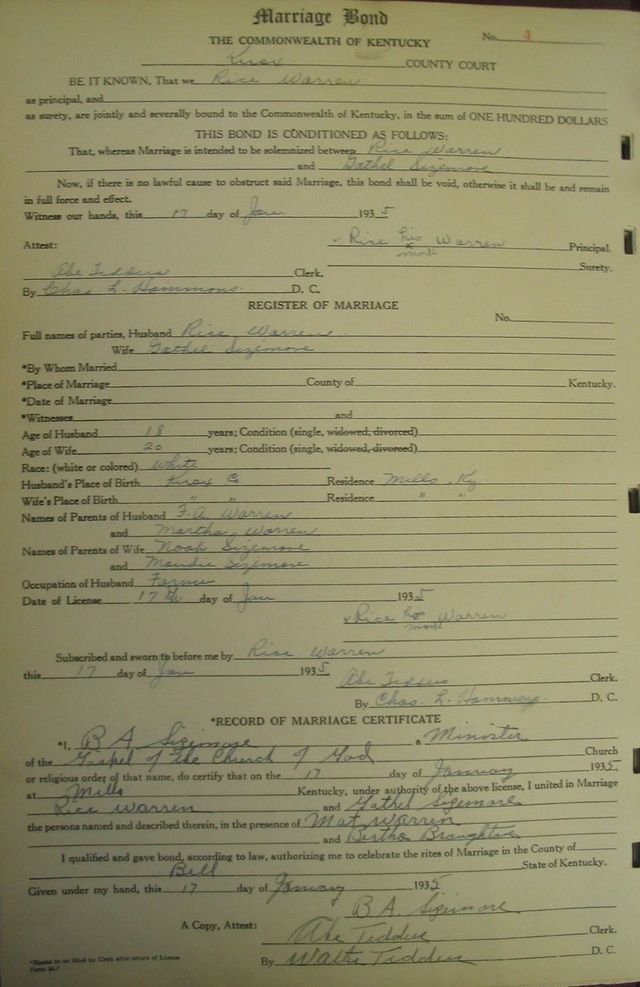 Marriage Bond
THE COMMONWEALTH OF KENTUCKY
No. 4
Knox COUNTY COURT
BE IT KNOWN, That we Rice Warren
as principal, and
as surety, are jointly and severally bound to the Commonwealth of Kentucky, in the sum of ONE HUNDRED DOLLARS
THIS BOND IS CONDITIONED AS FOLLOWS:
That, whereas Marriage is intended to be solemnized between Rice Warren
and Gathel Sizemore
Now, if there is no lawful cause to obstruct said Marriage, this bond shall be void, otherwise it shall be and remain
in full force and effect.
Witness our hands, this 17 day of Jan 1935
x Rice his x mark Warren Principal.
Attest:
Surety.
Abe Tedders Clerk.
By Chas. L. Hammons. D. C.
REGISTER OF MARRIAGE
No.
Full names of parties, Husband Rice Warren
Wife Gathel Sizemore
*By Whom Married
*Place of Marriage County of Kentucky.
*Date of Marriage
*Witnesses and
Age of Husband 18 years; Condition (single, widowed, divorced)
Age of Wife 20 years; Condition (single, widowed, divorced)
Race: (white or colored) White
Husband's Place of Birth Knox Co Residence Mills, Ky
Wife's Place of Birth " " Residence " "
Names of Parents of Husband F.A. Warren
and Martha Warren
Names of Parents of Wife Noah Sizemore
and Maudie Sizemore
Occupation of Husband Farmer
Date of License 17th day of Jan 1935
x Rice his mark Warren
Subscribed and sworn to before me by Rice Warren
this 17 day of Jan 1935
Abe Tedders Clerk.
By Chas. L. Hammons. D. C.
*RECORD OF MARRIAGE CERTIFICATE
*I, B A Sizemore a Minister
of the Gospel of the Church of God Church
or religious order of that name, do certify that on the 17 day of January 1935
at Mills Kentucky, under authority of the above license, I united in Marriage
Rice Warren and Gathel Sizemore
the persons named and described therein, in the presence of Mat Warren
and Bertha Broughton
I qualified and gave bond, according to law, authorizing me to celebrate the rites of Marriage in the County of
Bell State of Kentucky.
Given under my hand, this 17 day of January 1935
B A. Sizemore.
A Copy, Attest: Abe Tedders Clerk.
By Walter Tedders D. C.
*Blanks to be filled by Clerk after return of License